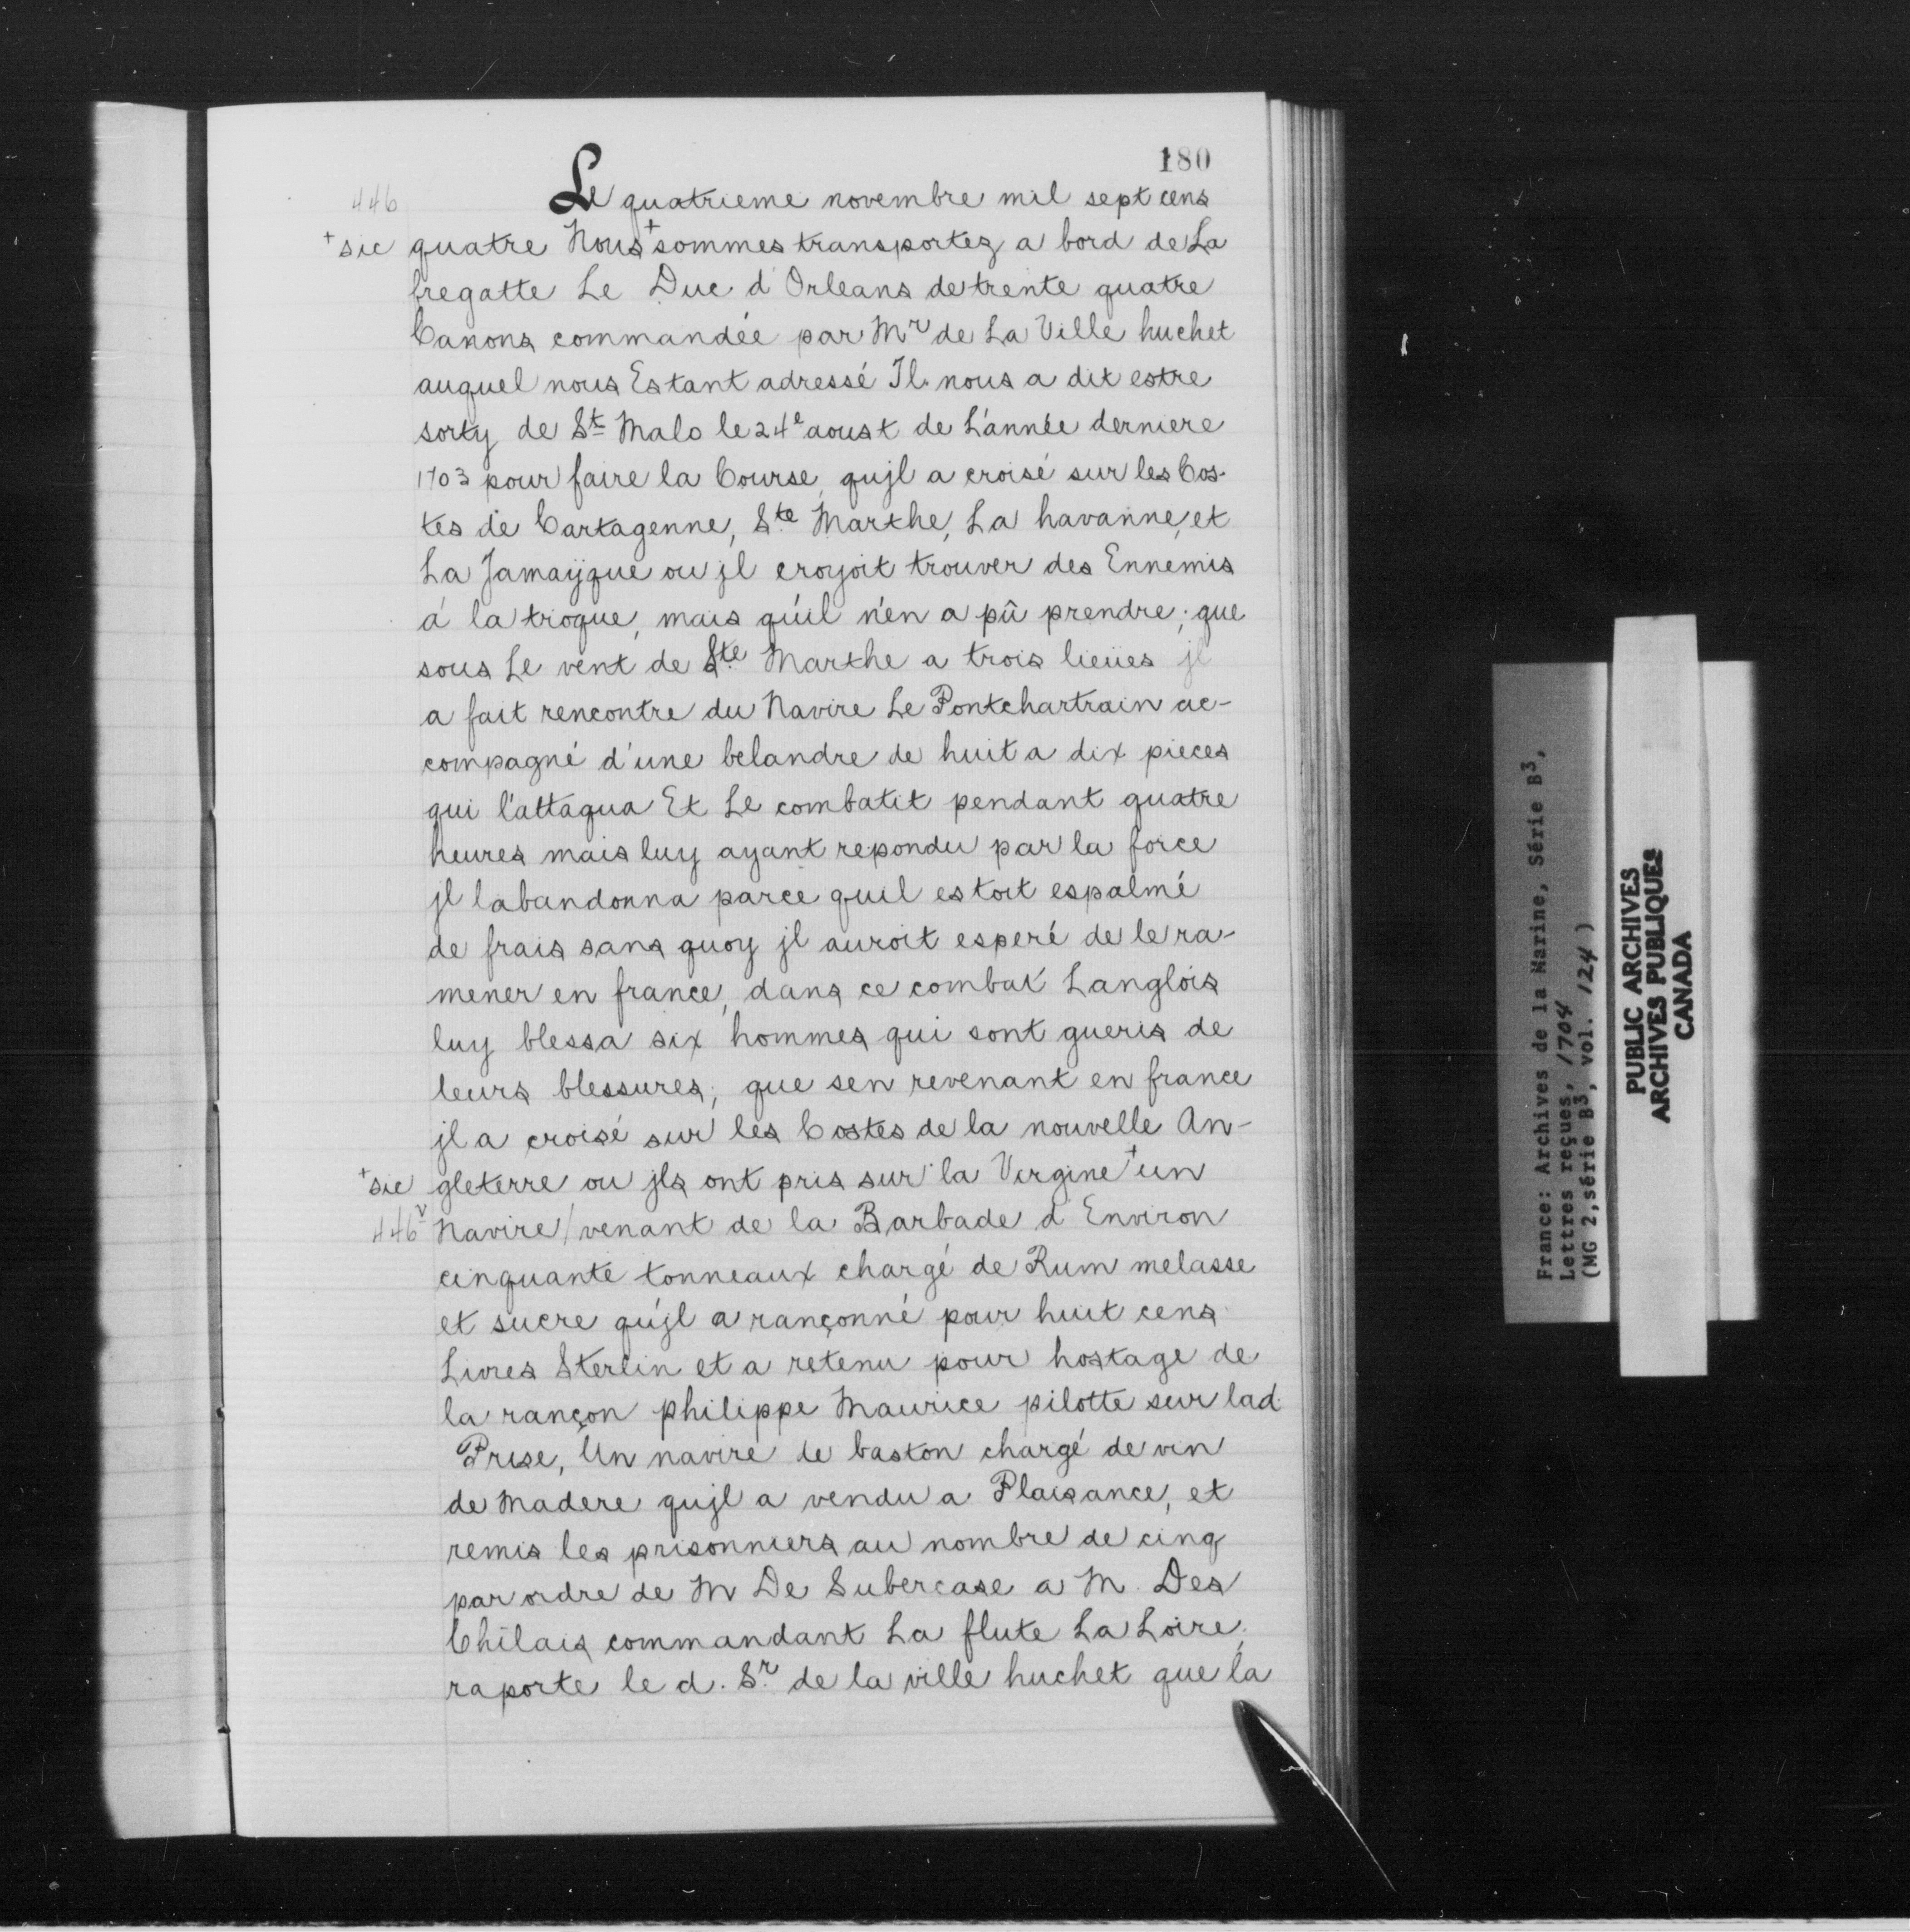 180
446
Le quatrieme novembre mil sept cens
+ sic quatre Nous + sommes transportez a bord de La
fregatte Le Duc d'Orleans de trente quatre
Canons commandée par Mr de La Ville huchet
auquel nous Estant adressé Il nous a dit estre
sorty de St Malo le 24e aoust de L'année derniere
1703 pour faire la Course, qujl a croisé sur les Cos-
tes de Cartagenne, Ste Marthe, La havanne, et
La Jamaÿque ou jl croyoit trouver des Ennemis
á la troque, mais qu'il n'en a pû prendre; que
sous Le vent de Ste Marthe a trois lieües jl
a fait rencontre du Navire Le Pontchartrain ac-
compagné d'une belandre de huit a dix pieces
qui l'attaqua Et Le combatit pendant quatre
heures mais luy ayant repondu par la force
jl labandonna parce quil estoit espalmé
de frais sans quoy jl auroit esperé de le ra-
mener en france, dans ce combat Langlois
luy blessa six hommes qui sont gueris de
leurs blessures; que sen revenant en france
jl a croisé sur les Costes de la nouvelle An-
+ sic gleterre ou jls ont pris sur la Virgine + un
446v Navire / venant de la Barbade d'Environ
cinquante tonneaux chargé de Rum melasse
et sucre qu'jl a rançonné pour huit cens
Livres Sterlin et a retenu pour hostage de
la rançon philippe Maurice pilotte sur lad.
Prise, Un navire de baston chargé de vin
de Madere qujl a vendu a Plaisance, et
remis les prisonniers au nombre de cinq
par ordre de M De Subercase a M. Des
Chilais commandant La flute La Loire,
raporte le d. Sr de la ville huchet que la
France: Archives de la Marine, Série B3,
Lettres reçues, 1704
(MG 2, série B3, vol. 124 )
PUBLIC ARCHIVES
ARCHIVES PUBLIQUES
CANADA